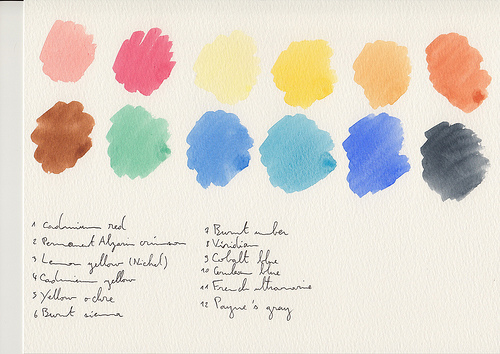 1 Cadmium red
2 Permanent Alizarin crimson
3 Lemon yellow (Nickel)
4 Cadmium yellow
5 Yellow ochre
6 Burnt sienna
7 Burnt umber
8 Viridian
9 Cobalt blue
10 Cerulean blue
11 French ultramarine
12 Payne's gray